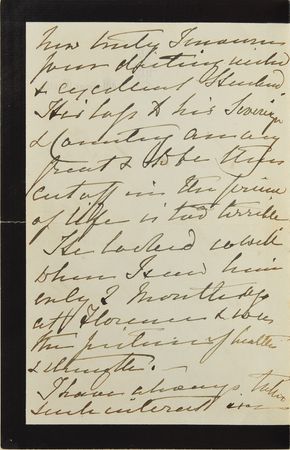 how truly I mourn
your distinguished
& excellent Husband.
His loss to his Sovereign
& Country are very
great & to be thus
cut off in the prime
of life is too terrible
He looked so well
when I saw him
only 2 Months ago
at Florence & was
the picture of health
& strength.
I have always taken
such interest in